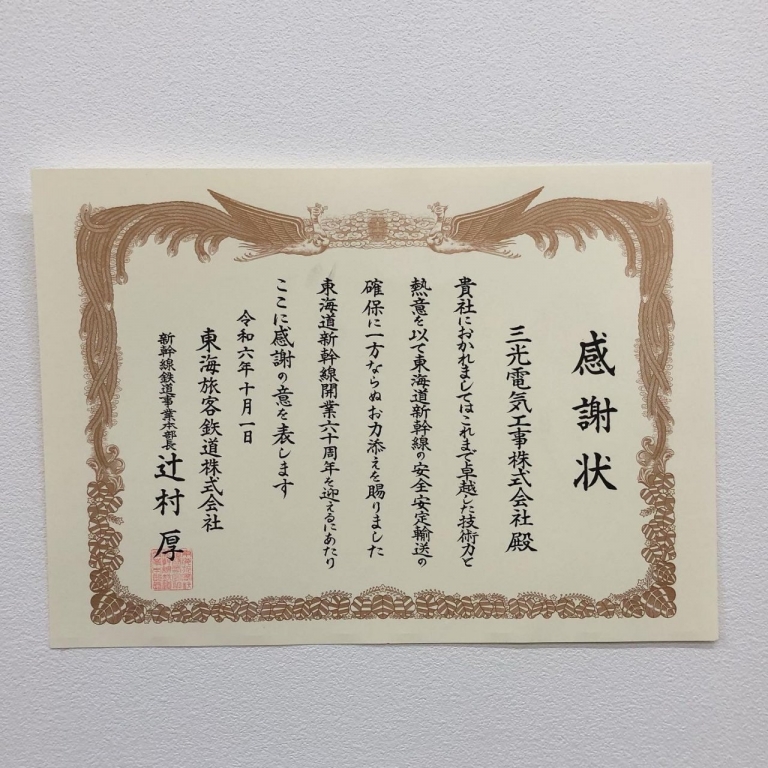 感謝状
三光電気工事株式会社殿
貴社におかれましてはこれまで卓越した技術力と
熱意を以て東海道新幹線の安全安定輸送の
確保に一方ならぬお力添えを賜りました
東海道新幹線開業六十周年を迎えるにあたり
ここに感謝の意を表します
令和六年十月一日
東海旅客鉄道株式会社
新幹線鉄道事業本部長 辻村 厚